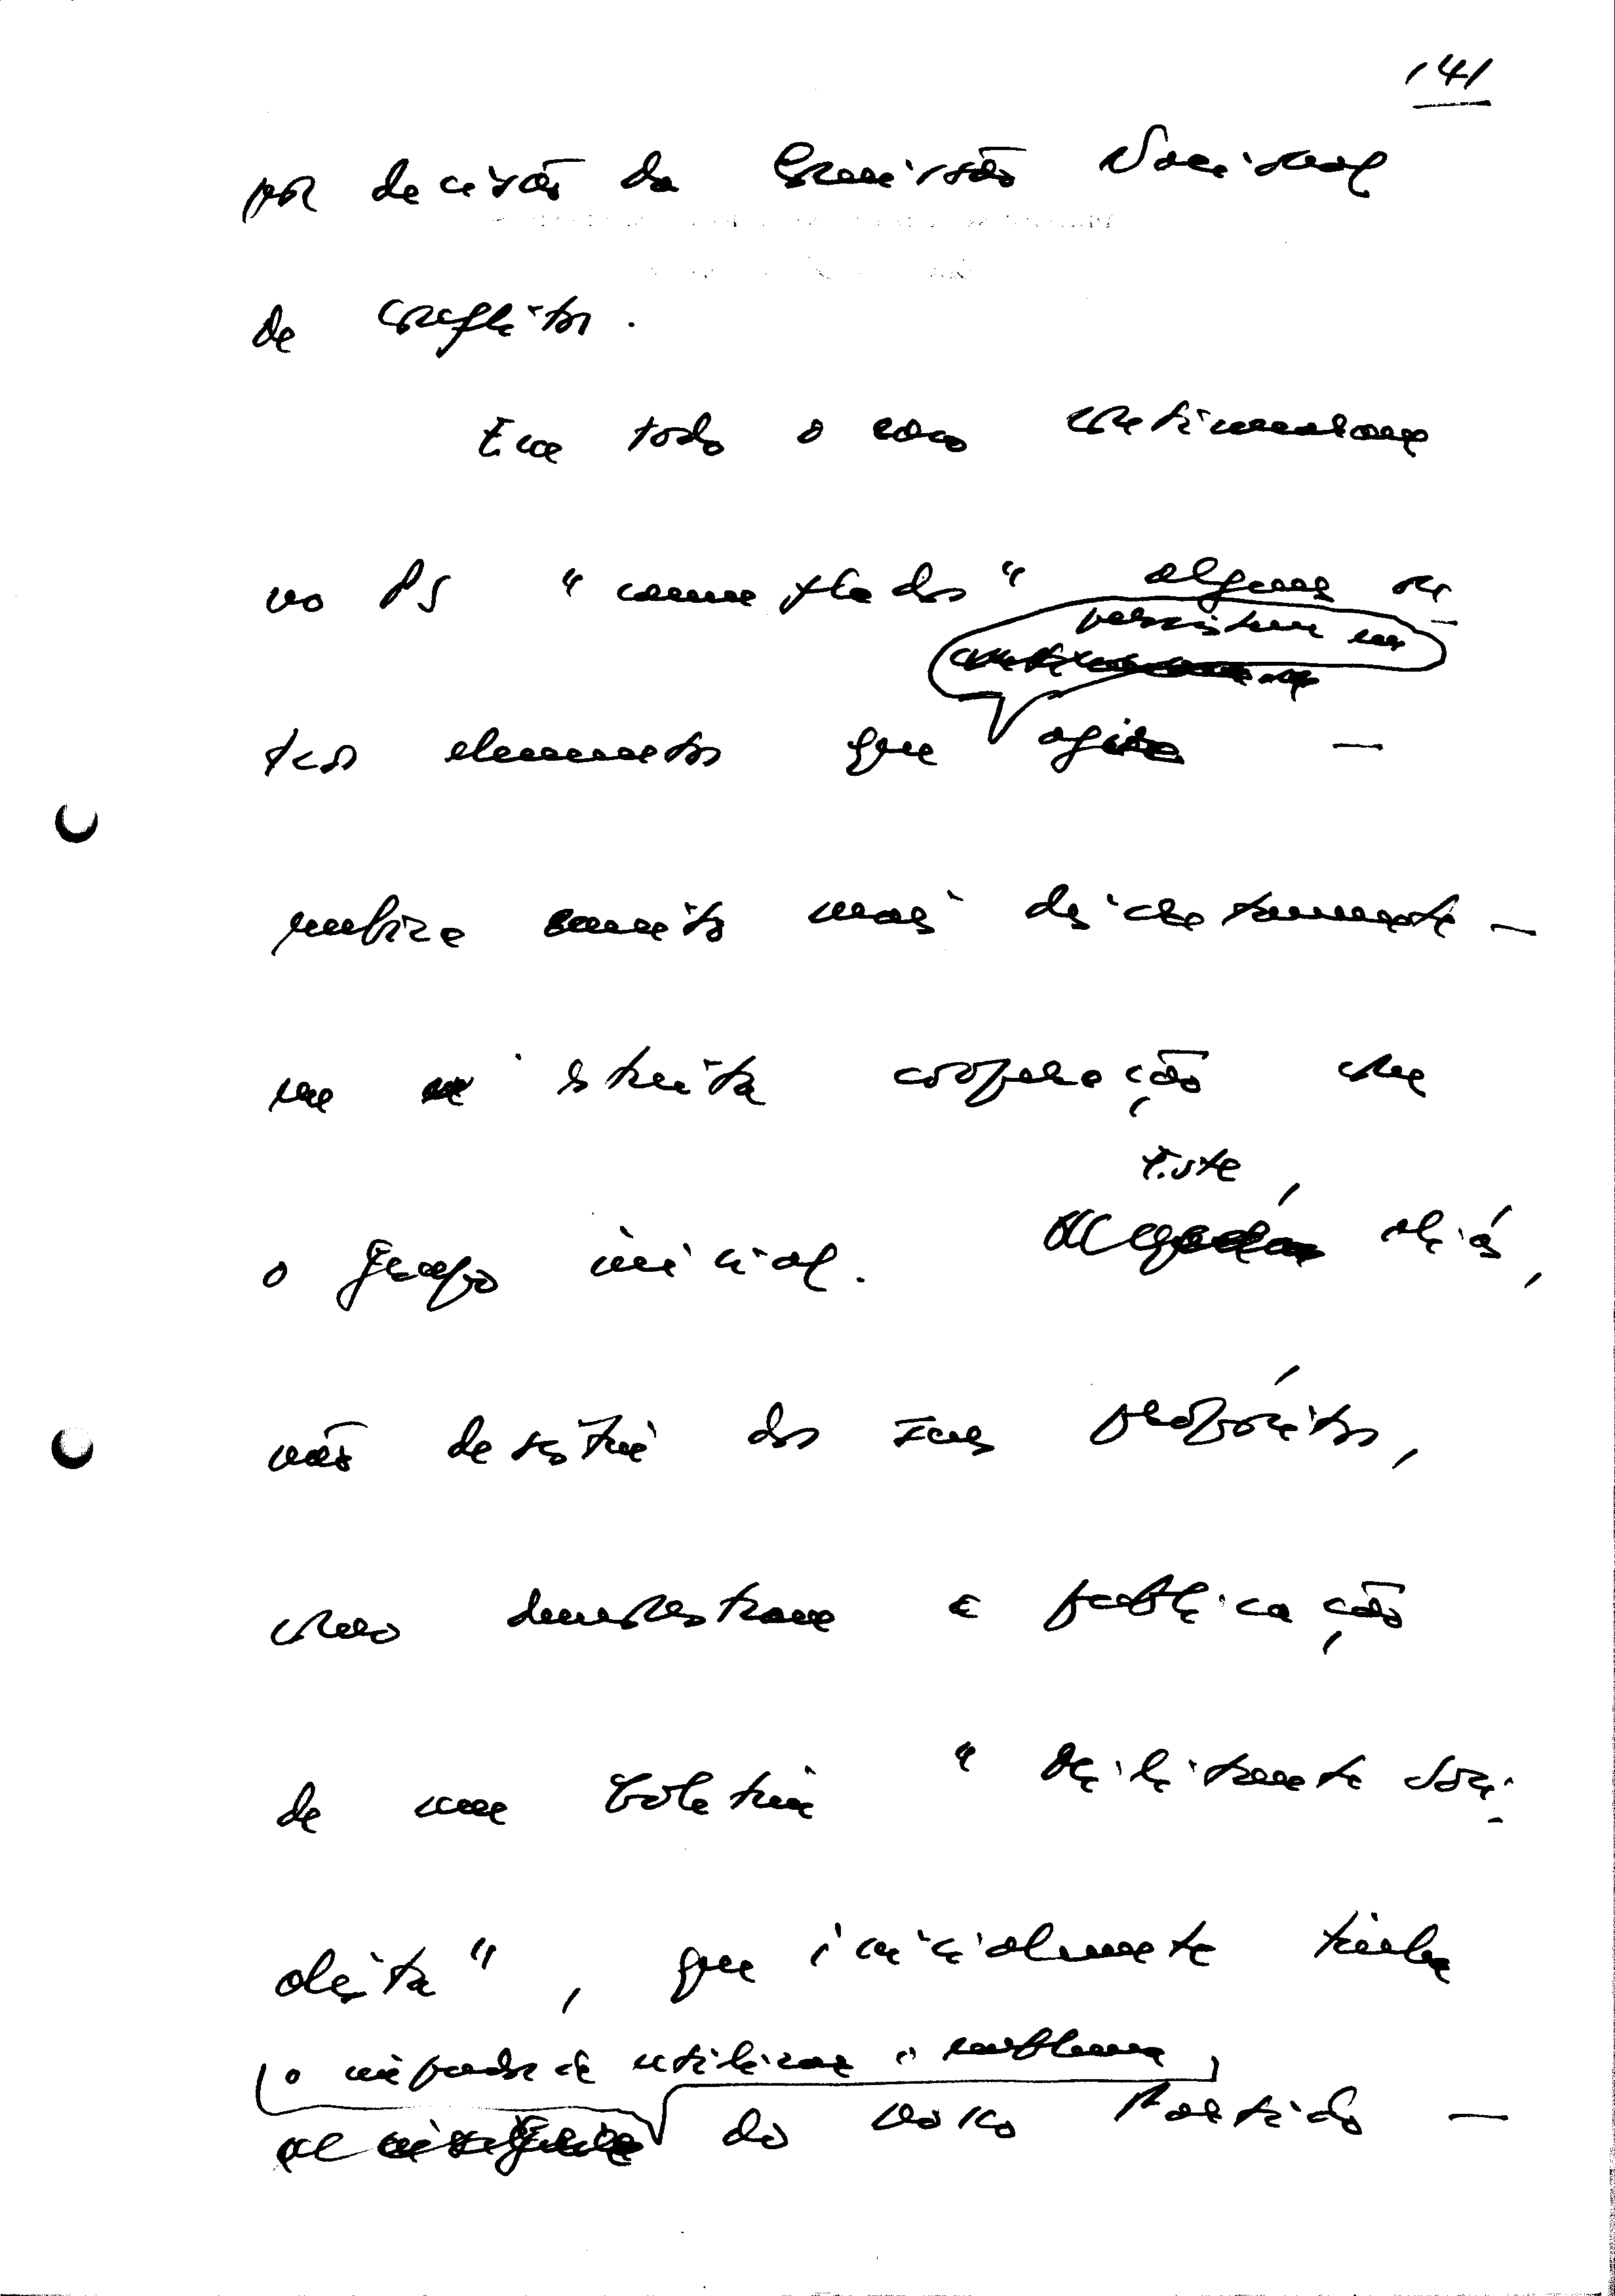 141
por decisão da Comissão Nacional
de Conflitos.
Em todo o caso continuaram
no PS "camuflados" alguns ou
persistem em
tros elementos que agir —
embora muito mais discretamente —
em estreita cooperação com
Este,
o grupo inicial. aliás,
não desistiu dos seus propósitos,
como demonstram a publicação
de um boletim " Militante Soci-
alista", que inicialmente tinha
o utilizar o emblema
do nosso Partido —